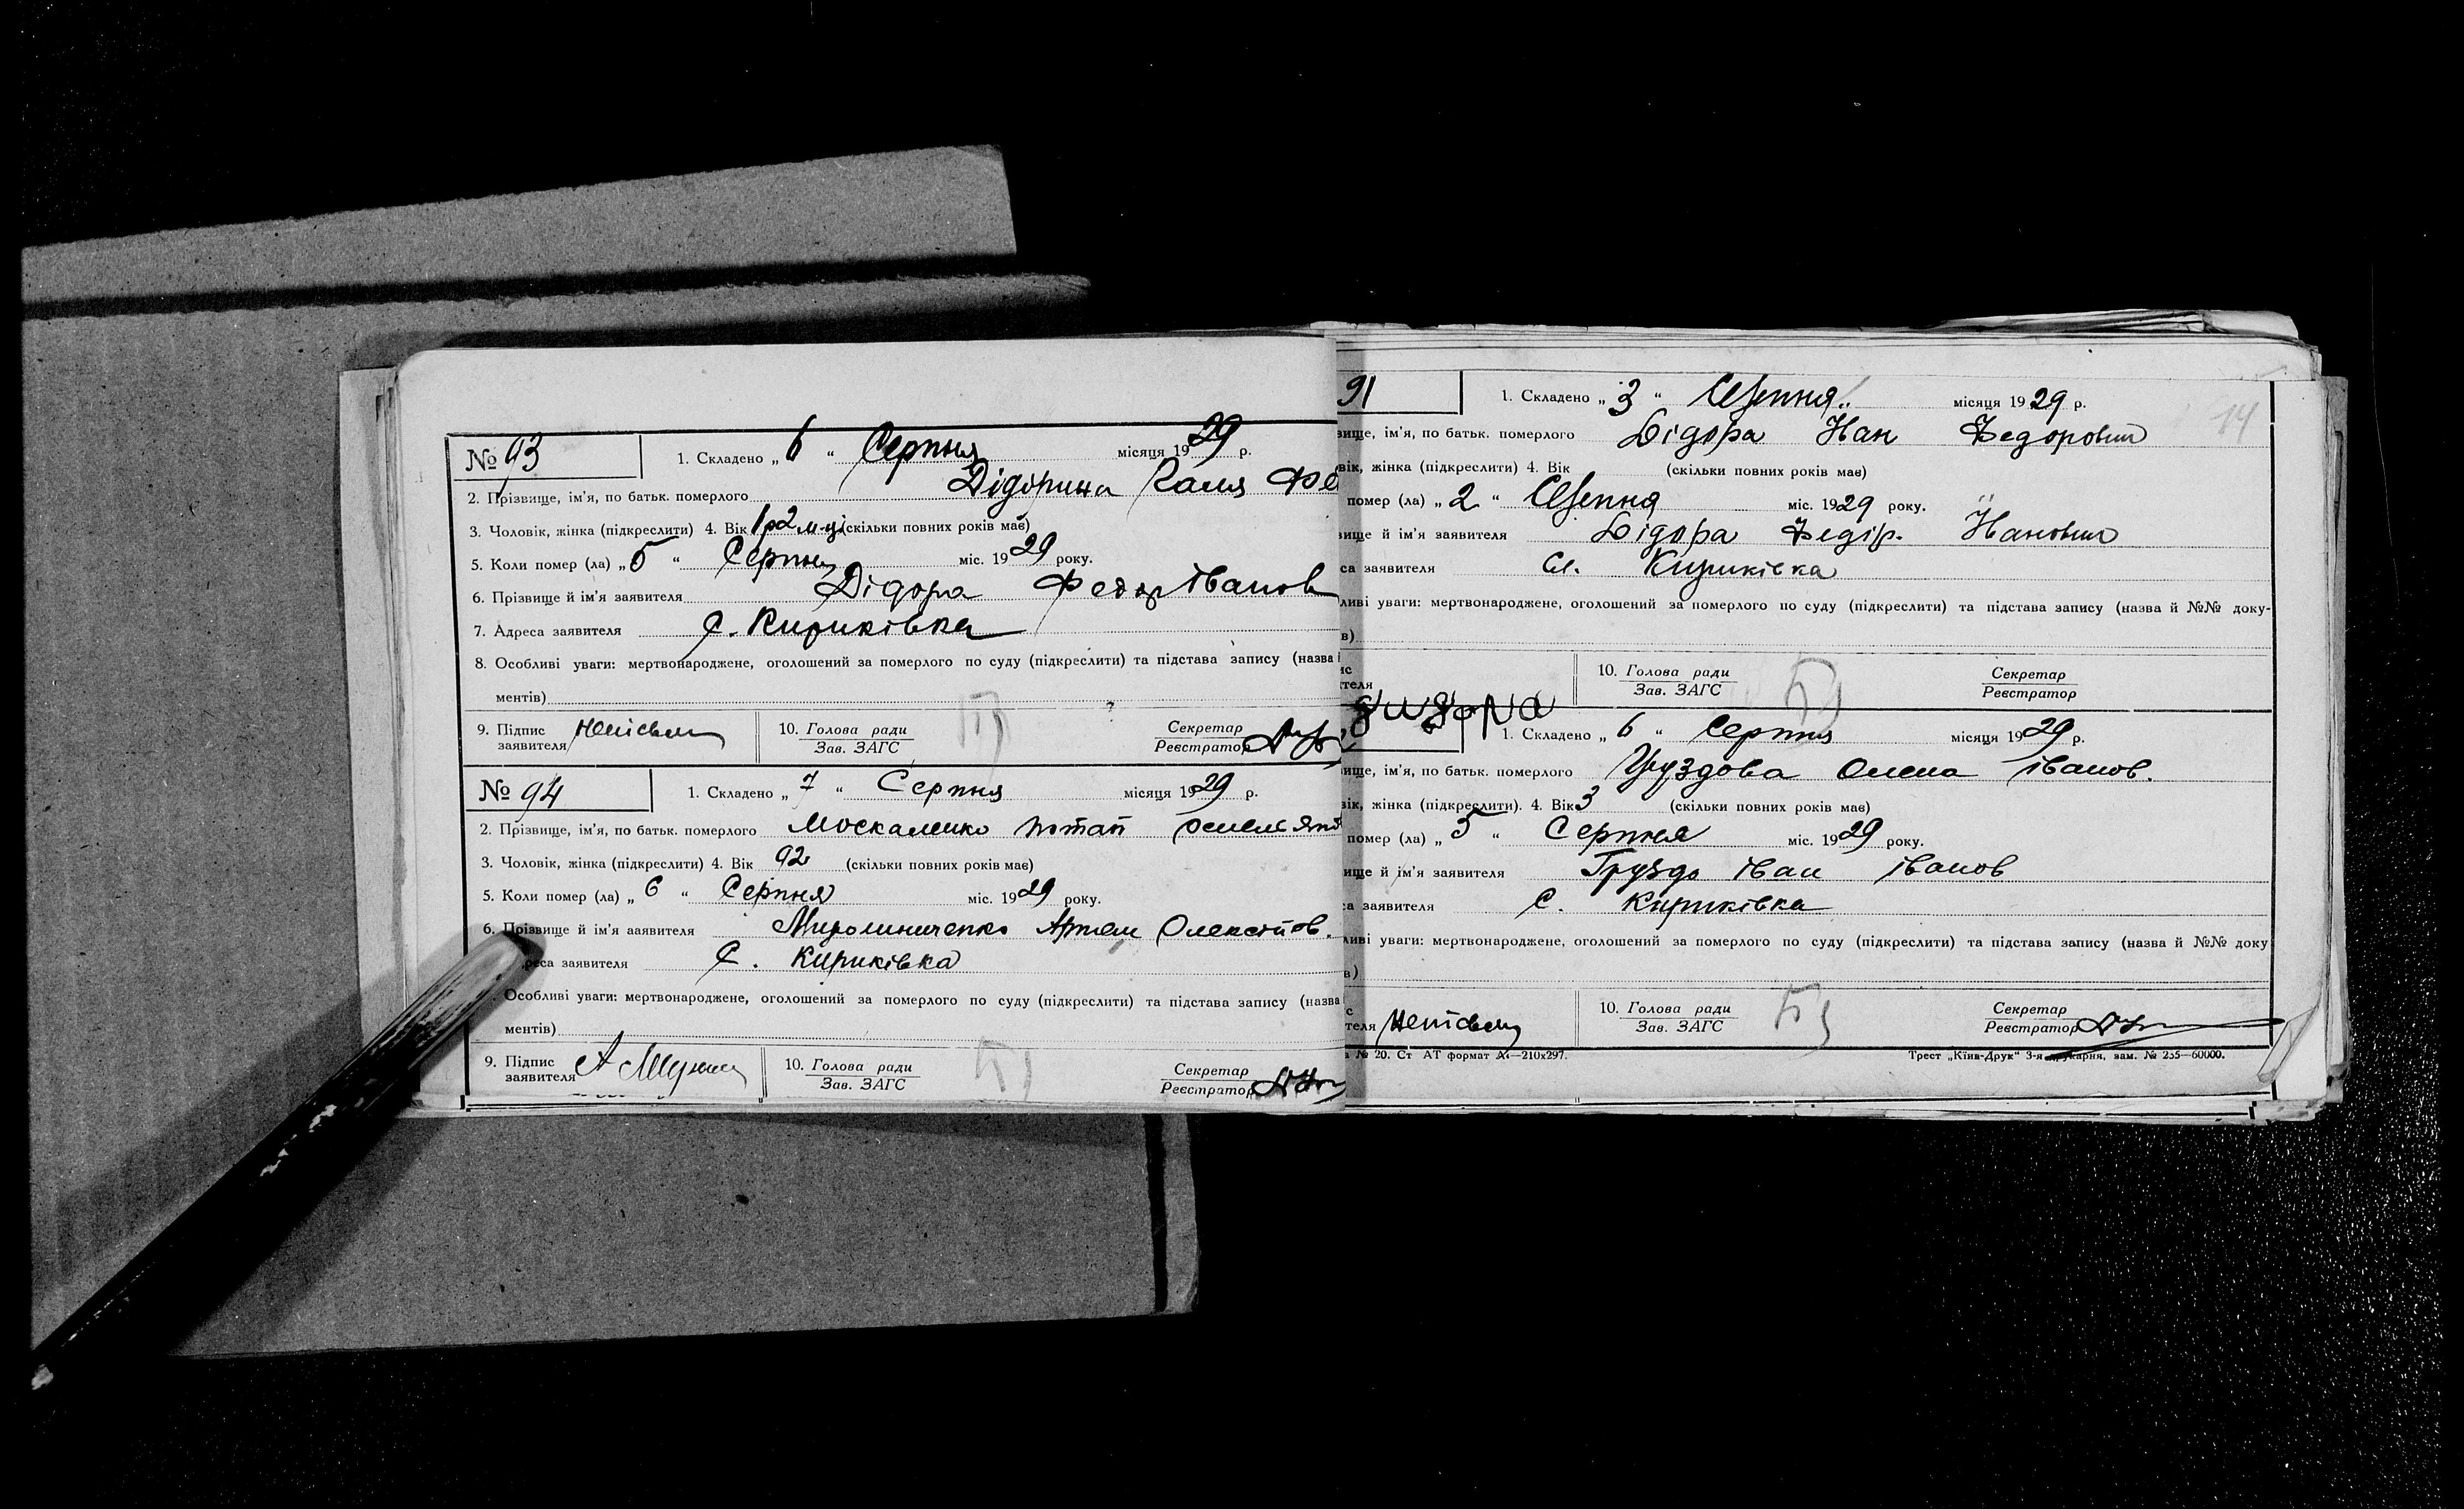 № 93
1. Складено „ 6 “ Серпня місяця 1929 р.
2. Прізвище, ім'я, по батьк. померлого Дідорина Галя Фе
3. Чоловік, жінка (підкреслити) 4. Вік 1р2м-ці (скільки повних років має)
5. Коли помер (ла) „ 5 “ Серпня міс. 1929 року.
6. Прізвище й ім'я заявителя Дідора Федор Іванов
7. Адреса заявителя с. Кириківка
8. Особливі уваги: мертвонароджене, оголошений за померлого по суду (підкреслити) та підстава запису (назва і
ментів)
9. Підпис заявителя 10. Голова ради Зав. ЗАГС Секретар Реєстратор
№ 94
1. Складено „ 7 “ Серпня місяця 1929 р.
2. Прізвище, ім'я, по батьк. померлого Москаленко Потап
3. Чоловік, жінка (підкреслити) 4. Вік 92 (скільки повних років має)
5. Коли помер (ла) „ 6 “ Серпня міс. 1929 року.
6. Прізвище й ім'я заявителя Артем Олексійов.
реса заявителя с. Кириківка
Особливі уваги: мертвонароджене, оголошений за померлого по суду (підкреслити) та підстава запису (назва
ментів)
9. Підпис заявителя 10. Голова ради Зав. ЗАГС Секретар Реєстратор
14
91
1. Складено „ 3 “ Серпня місяця 1929 р.
вище, ім'я, по батьк. померлого Дідора Иван Федорович
вік, жінка (підкреслити) 4. Вік (скільки повних років має)
помер (ла) „ 2 “ Серпня міс. 1929 року.
вище й ім'я заявителя Дідора Федір Иванович
са заявителя сл. Кириківка
ливі уваги: мертвонароджене, оголошений за померлого по суду (підкреслити) та підстава запису (назва й №№ доку-
в)
ис теля дидора 10. Голова ради Зав. ЗАГС Секретар Реєстратор
1. Складено „ 6 “ Серпня місяця 1929 р.
вище, ім'я, по батьк. померлого Груздова Олена Іванов.
вік, жінка (підкреслити). 4. Вік 3 (скільки повних років має)
помер (ла) „ 5 “ Серпня міс. 1929 року.
вище й ім'я заявителя Груздо Іван Іванов
са заявителя с. Кириківка
ливі уваги: мертвонароджене, оголошений за померлого по суду (підкреслити) та підстава запису (назва й №№ доку
в)
с теля 10. Голова ради Зав. ЗАГС Секретар Реєстратор
№ 20. Ст АТ формат А4—210х297. Трест „Київ-Друк“ 3-я друкарня, зам. № 235—60000.